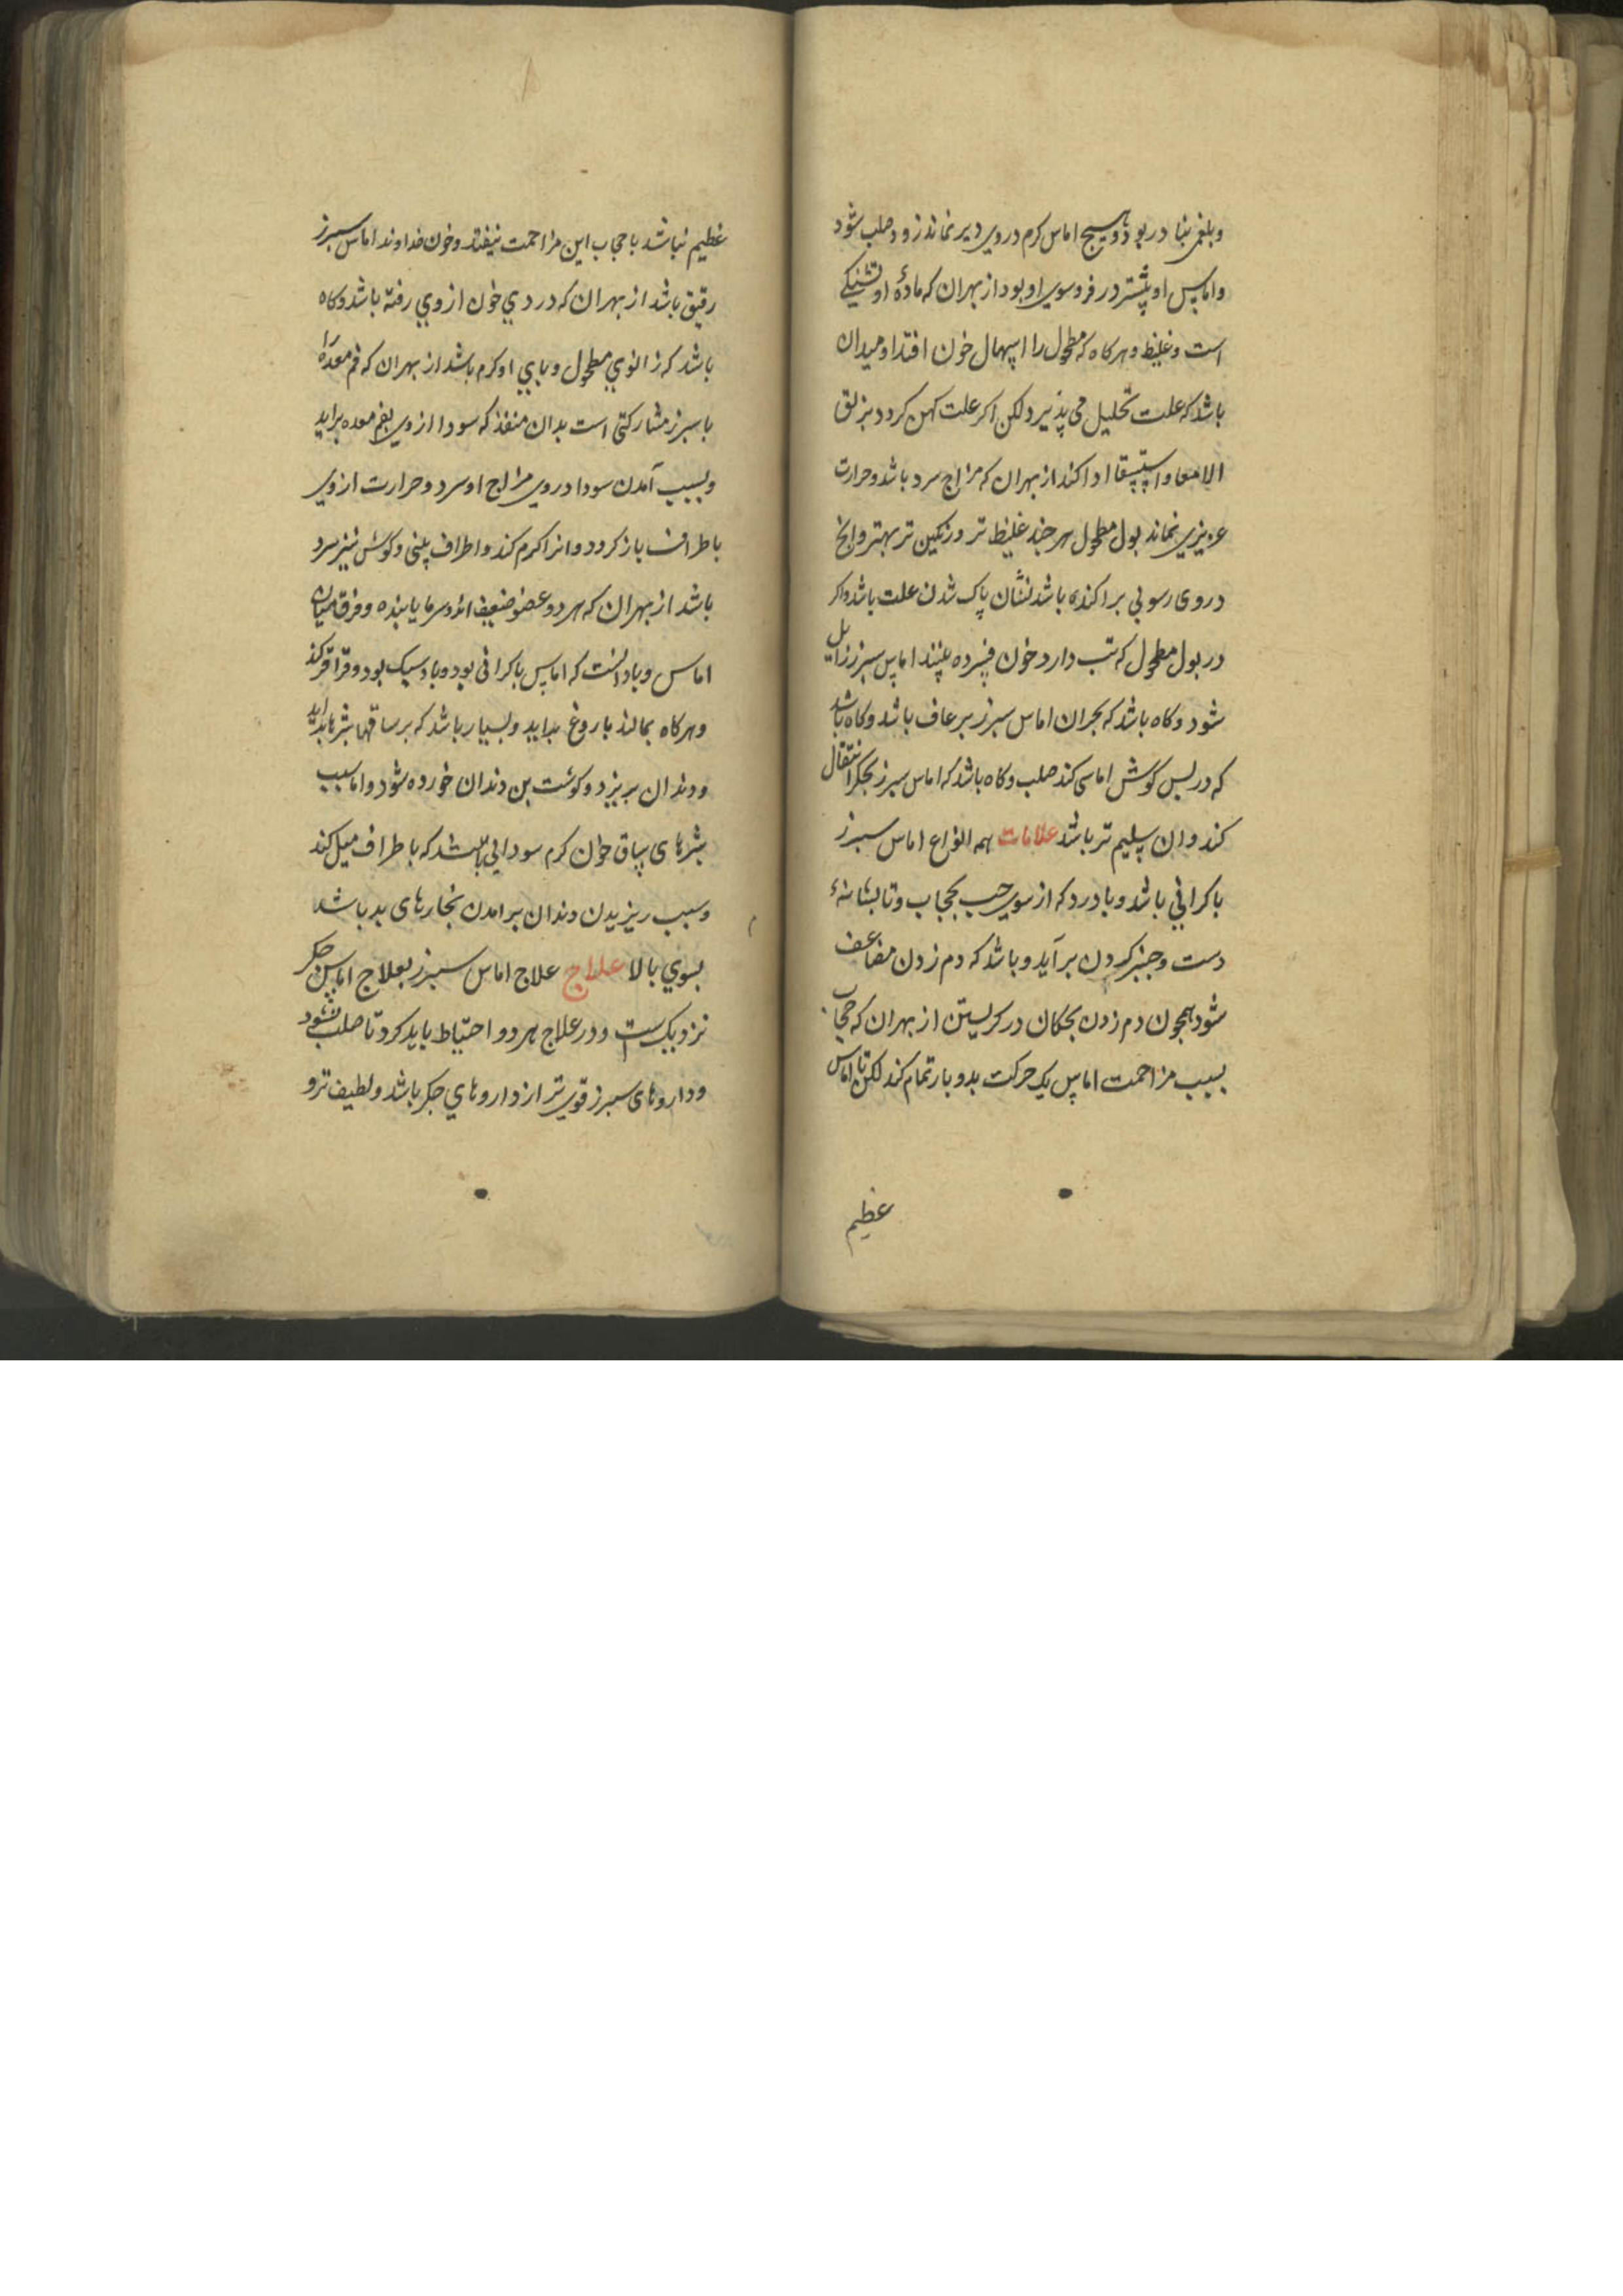 وبلغمی نبا در بود و هیچ اماس کرم در وی دیر نماند زود صلب شود
واماس او بیشتر در فروسوی او بود از بهر ان که ماده او
است وغلیظ وهرکاه که مطحول را اسهال خون افتد اومیدان
باشد که علت تحلیل می پذیرد لکن اکر علت کهن کردد بزلق
الامعا واستسقا ادا کند از بهر ان که مزاج سرد باشد وحرارت
عزیزی نماند بول مطحول هر چند غلیظ تر ورنکین تر بهتر وانج
در وی رسوبی براکنده باشد نشان پاک شدن علت باشد واکر
در بول مطحول که تب دارد خون فسرده بینند اماس سبرز زایل
شود وکاه باشد که بحران اماس سبرز برعاف باشد وکاه باشد
که در بس کوش اماسی کند صلب وکاه باشد که اماس سبرز بجکر انتقال
کند وان سلیم تر باشد علامات همه انواع اماس سبرز
با کرانی باشد وبا درد که از سوی جب بحجاب وتا بشانهٔ
دست وجنبر کردن برآید وباشد که دم زدن مضاعف
شود همجون دم زدن بجکان در کریستن از بهر ان که حجاب
بسبب مزاحمت اماس یک حرکت بدو بار تمام کند لکن تا اماس
عظیم
عظیم نباشد با حجاب این مزاحمت نیفتد وخون خداوند اماس سبرز
رقیق باشد از بهر ان که دردی خون از وی رفته باشد وکاه
باشد که زانوی مطحول وبای او کرم باشد از بهر ان که فم معده را
با سبرز مشارکتی است بدان منفذ که سودا از وی بفم معده براید
وبسبب آمدن سودا در وی مزاج او سرد وحرارت از وی
باطراف باز کردد وانرا کرم کند واطراف بینی وکوش نیز سرد
باشد از بهر ان که هر دو عضو ضعیف اند وسرما یابنده وفرق میان
اماس وباد انست که اماس با کرانی بود وباد سبک بود وقراقر کند
وهرکاه بمالند باروغ بداید وبسیار باشد که بر ساقها بثرها بداید
ودندان بریزد وکوشت بن دندان خورده شود واما سبب
بثرهای ساق خون کرم سودایی باشد که باطراف میل کند
وسبب ریزیدن دندان برامدن بخارهای بد باشد
بسوی بالا علاج علاج اماس سبرز بعلاج اماس جکر
نزدیک است ودر علاج هر دو احتیاط باید کرد تا صلب نشود
وداروهای سبرز قوی تر از داروهای جکر باشد ولطیف تر و